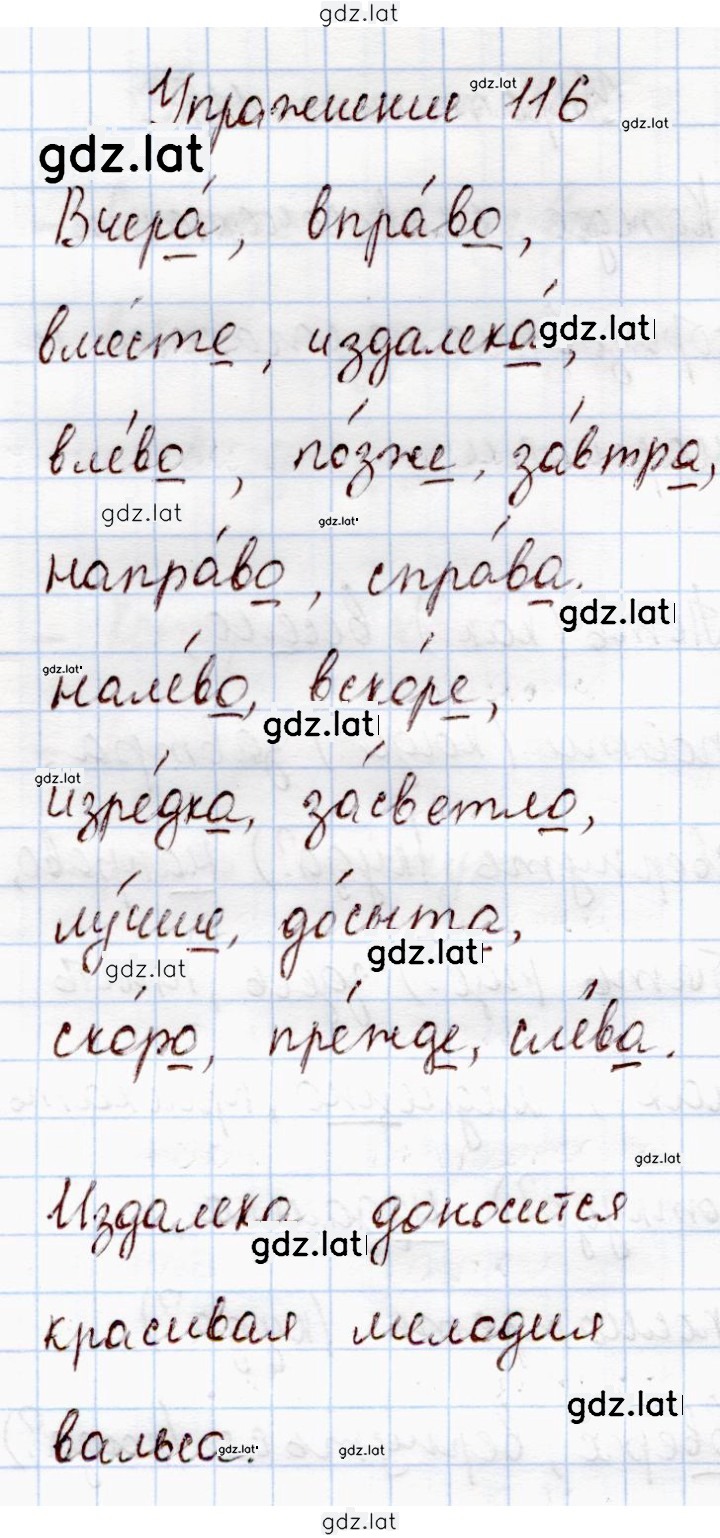 gdz.lat
Упражнение gdz.lat 116
gdz.lat
gdz.lat
Вчера́, впра́во,
вме́сте, издалека́, gdz.lat
вле́во, по́зже, за́втра,
gdz.lat gdz.lat
напра́во, спра́ва.
gdz.lat
gdz.lat
нале́во, вско́ре,
gdz.lat
gdz.lat
изре́дка, за́светло,
лу́чше, до́сыта,
gdz.lat
gdz.lat
ско́ро, пре́жде, сле́ва.
gdz.lat
Издалека доносится
gdz.lat
красивая мелодия
gdz.lat
вальса.
gdz.lat gdz.lat
gdz.lat